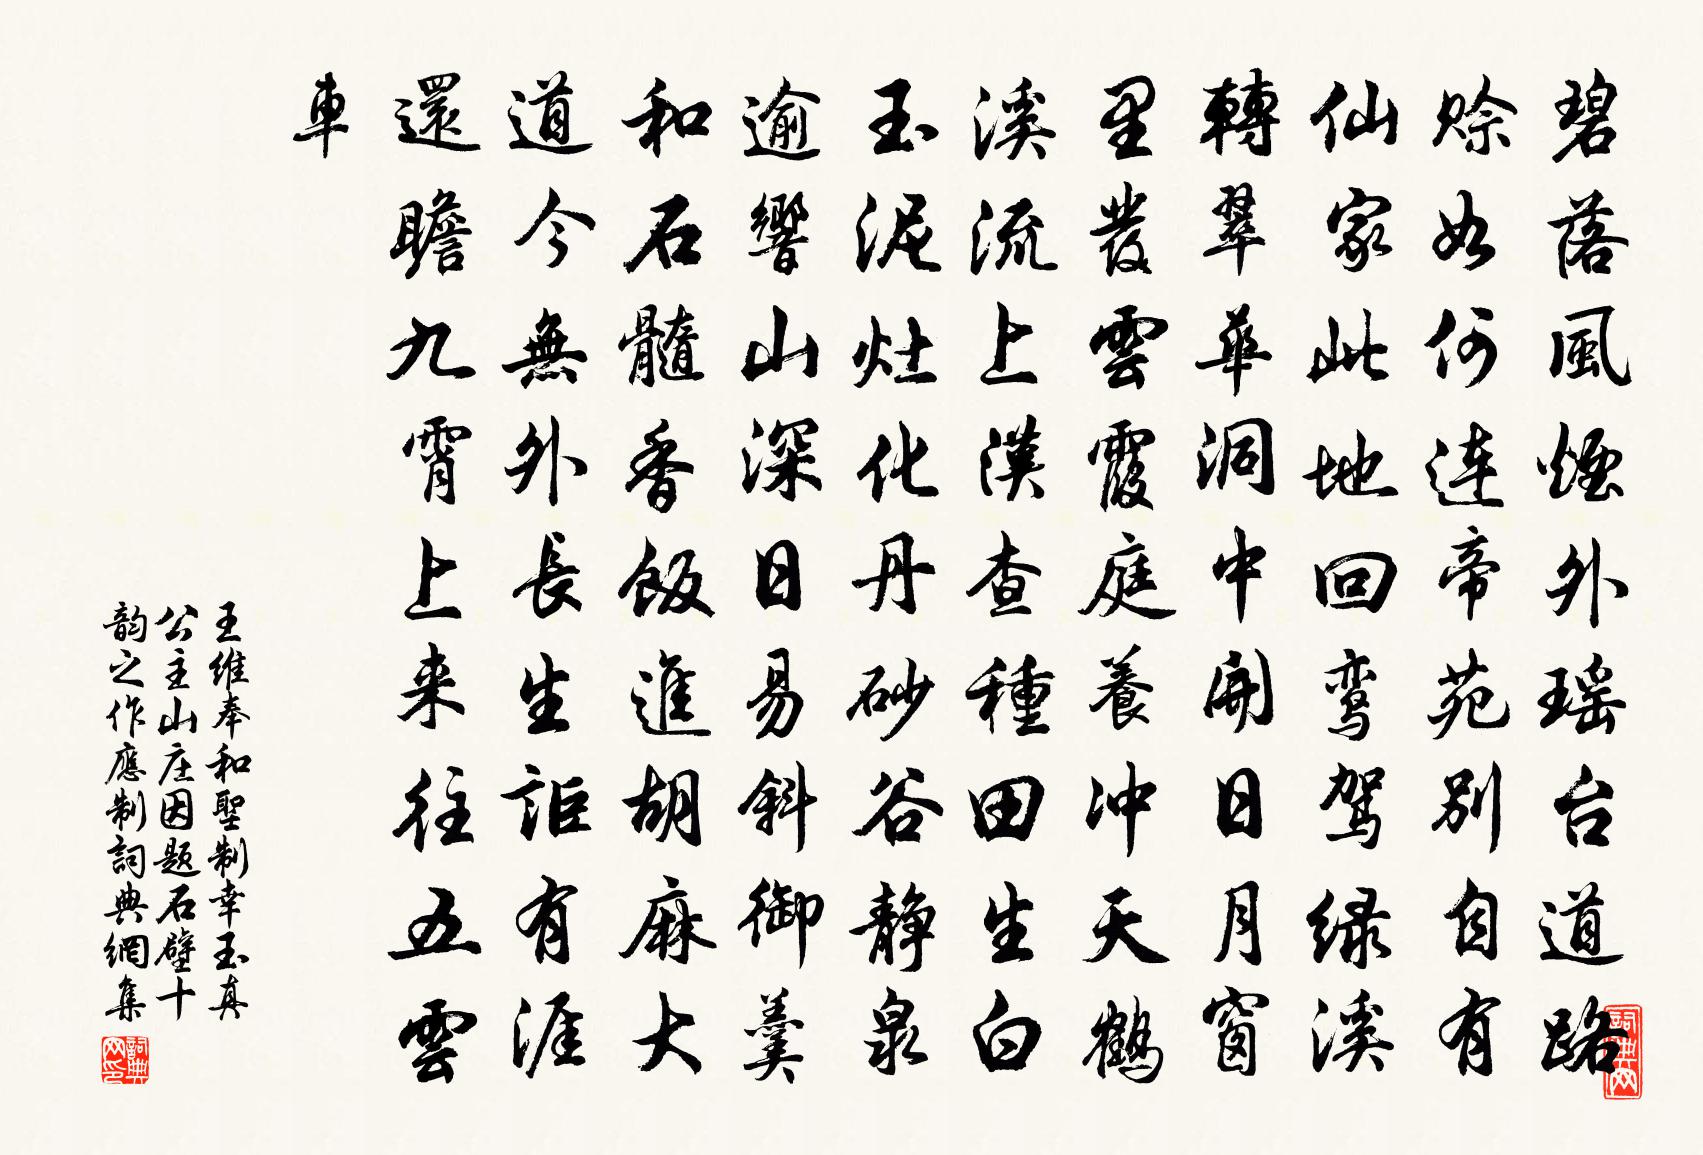 碧落風煙外瑶台道路
賒如何連帝苑别自有
仙家此地回鸾駕緑溪
轉翠華洞中開日月窗
里發雲霞庭養冲天鶴
溪流上漢查種田生白
玉泥灶化丹砂谷静泉
逾響山深日易斜御羹
和石髓香飯進胡麻大
道今無外長生詎有涯
還瞻九霄上来往五雲
車
王維奉和聖制幸玉真
公主山庄因题石壁十
韵之作應制詞典網集
詞典网
詞典网印